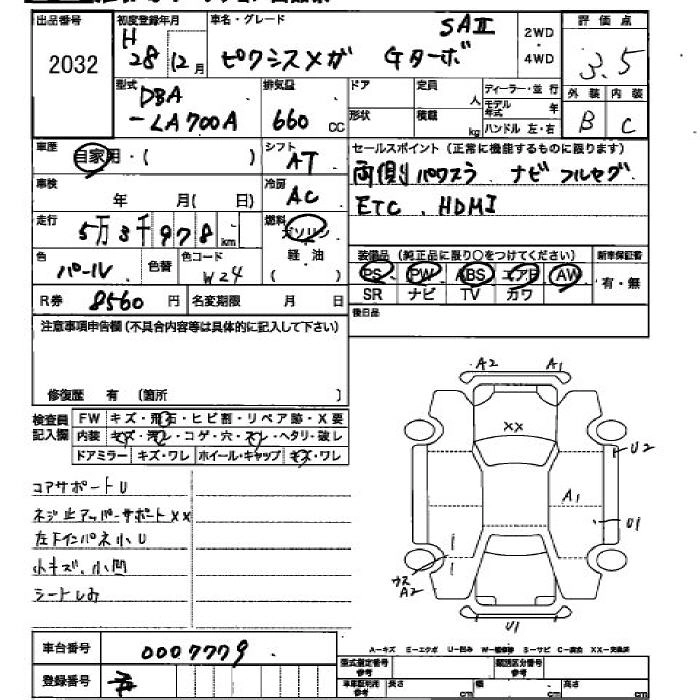 出品番号 初度登録年月 車名・グレード 評価点
2032 H 28年 12月 ピクシスメガ Gターボ SAⅡ 2WD・4WD 3.5
型式 排気量 ドア 定員 人 ディーラー・並行 外装 内装
DBA-LA700A 660 cc 形状 積載 kg モデル年式 年 ハンドル 左・右 B C
車歴 自家用・( ) シフト AT セールスポイント (正常に機能するものに限ります)
車検 年 月( 日) 冷房 AC 両側パワスラ ナビ フルセグ
ETC、HDMI
走行 5万3千978km 燃料 ガソリン 軽油 ( ) 装備品 (純正品に限り○をつけてください) 新車保証書
色 パール 色替 色コード W24 PS PW ABS エアB AW 有・無
R券 8560円 名変期限 月 日 SR ナビ TV カワ
注意事項申告欄 (不具合内容等は具体的に記入して下さい) 後日品
修復歴 有 (箇所 )
検査員記入欄 FW キズ・飛石・ヒビ割・リペア跡・X要
内装 キズ・汚レ・コゲ・穴・スレ・ヘタリ・破レ
ドアミラー キズ・ワレ ホイール・キャップ キズ・ワレ
A2 A1
XX
U2
A1
U1
ウスA2
U1
コアサポートU
ネジ止アッパーサポートXX
左下インパネ小U
小キズ、小凹
シートしみ
車台番号 0007779
A-キズ E-エクボ U-凹み W-補修跡 S-サビ C-腐食 XX-交換済
登録番号
型式指定番号 類別区分番号 参考
車庫証明用 参考 長さ cm 幅 cm 高さ cm